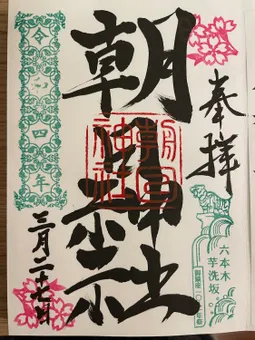 奉拝
六本木
芋洗坂
朝日神社
朝日神社
令和四年
三月二十七日